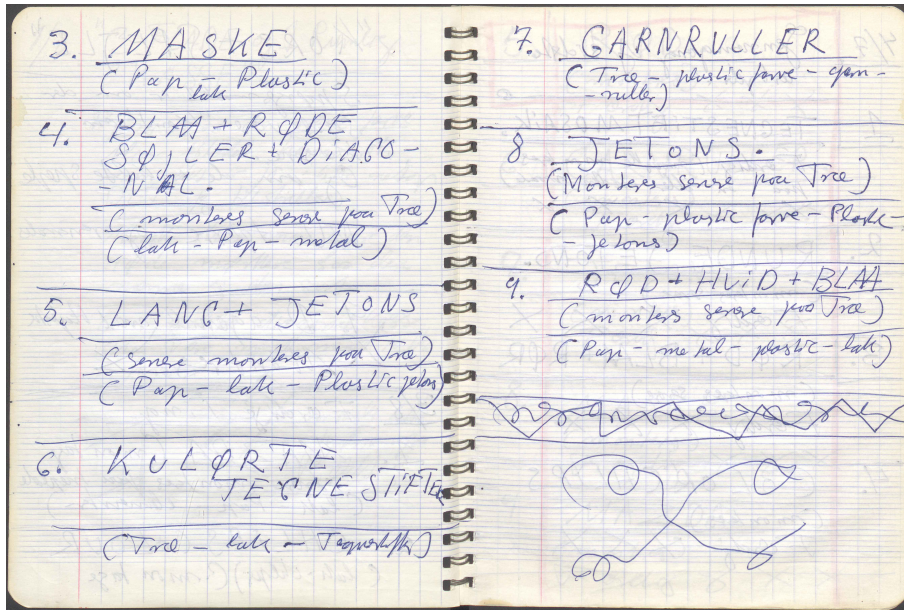 3. MASKE
(Pap - Plastic)
lak
4. BLAA + RØDE
SØJLER + DIAGO-
-NAL.
(monteres senere paa Træ)
(lak - Pap - metal)
5. LANG + JETONS
(senere monteres paa Træ)
(Pap - lak - Plastic jetons)
6. KULØRTE
TEGNESTIFTER
(Træ - lak - Tegnestifter)
7. GARNRULLER
(Træ - plastic farve - garn-
-ruller)
8. JETONS.
(Monteres senere paa Træ)
(Pap - plastic farve - Plastic-
-jetons)
9. RØD + HViD + BLAA
(monters senere paa Træ)
(Pap - metal - plastic - lak)